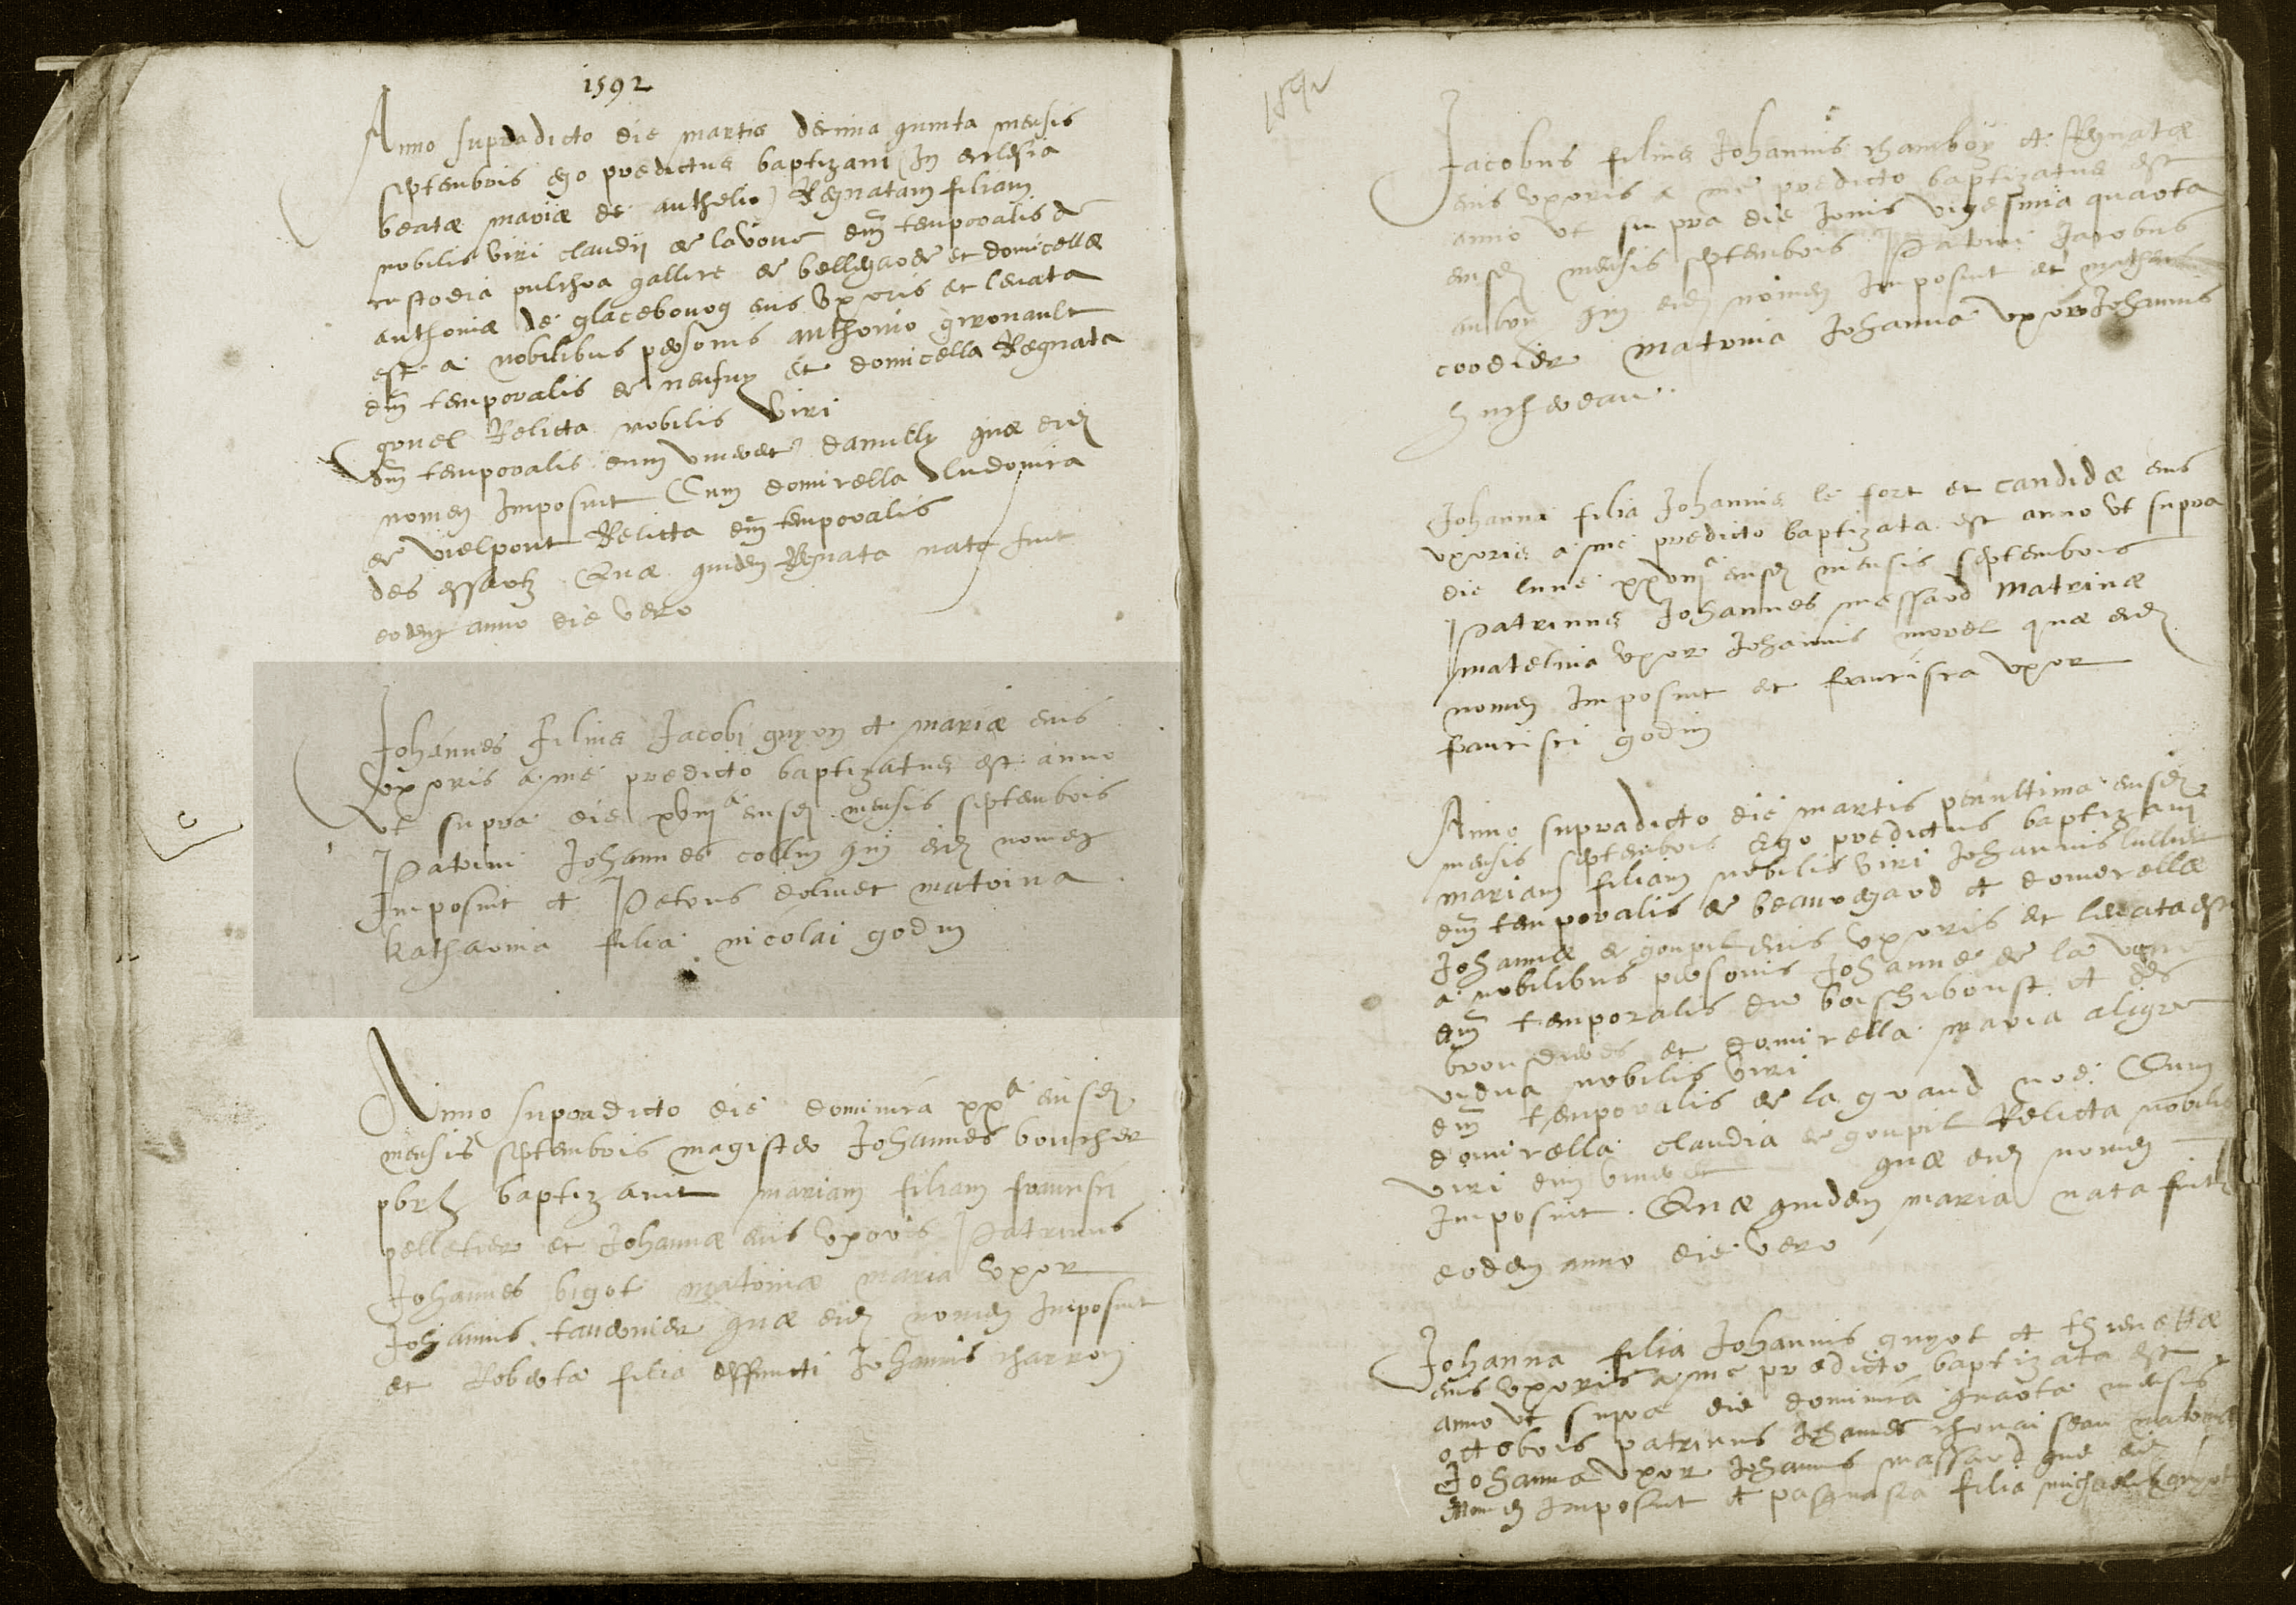 1592
Anno supradicto die martis decima quinta mensis
septembris ego predictus baptizavi (In ecclesia
beatæ mariæ de anthelio) Regnatam filiam
nobilis viri claudij de lavove dm̃ temporalis de
custodia pulchra gallice de bellegarde et domicellæ
anthoniæ de glacebourg eius uxoris et levata
est a nobilibus personis anthonio gironault
dm̃ temporalis de neufuy et domicella Regnata
grouel Relicta nobilis viri
dm̃ temporalis dum viveret damilly quæ eidē
nomen Imposuit Cum domicella ludovica
de vielpont Relicta dm̃ temporalis
des essartz Quæ quidem Regnata nata fuit
eodem anno die vero
Johannes filius Jacobi guyon et mariæ eius
uxoris a me predicto baptizatus est anno
ut supra die xviij^a eiusdē mensis septembris
Patrini Johannes collin qui eidē nomen
Imposuit et Petrus dolivet matrina
katharina filia nicolai godin
Anno supradicto die dominica xx^a eiusdē
mensis septembris magister Johannes boucher
pbr̄ baptizavit mariam filiam francisci
pelletier et Johannæ eius uxoris Patrinus
Johannes bigot matrinæ maria uxor
Johannis tavernier quæ eidē nomen Imposuit
et Roberta filia deffuncti Johannis charron
1592
Jacobus filius Johannis chamboy et Regnatæ
eius uxoris a me predicto baptizatus est
anno ut supra die Jovis vigesima quarta
eiusdē mensis septembris Patrini Jacobus
aubry qui eidē nomen Imposuit et
cordier matrina Johanna uxor Johannis
hucherdeau
Johanna filia Johannis le fort et candidæ eius
uxoris a me predicto baptizata est anno ut supra
die lune xxviij^a eiusdē mensis septembris
Patrinus Johannes massard matrinæ
matelina uxor Johannis morel quæ eidē
nomen Imposuit et francisca uxor
francisci godin
Anno supradicto die martis penultima eiusdē
mensis septembris ego predictus baptizavi
mariam filiam nobilis viri Johannis lullier
dm̃ temporalis de beauregard et domicellæ
Johannæ de goupil eius uxoris et levata est
a nobilibus personis Johanne de la vove
dm̃ temporalis de boischiboust et des
et domicella maria aligre
vidua nobilis viri
dm̃ temporalis de la grand noe Cum
domicella claudia de goupil Relicta nobilis
viri dum viveret quæ eidē nomen
Imposuit. Quæ quidem maria nata fuit
eodem anno die vero
Johanna filia Johannis guyot et thienettæ
eius uxoris a me predicto baptizata est
anno ut supra die dominica quarta mensis
octobris patrinus Johannes matrinæ
Johanna uxor Johannis massard que eidē
nomen Imposuit et pasquasia filia michaelis guyot